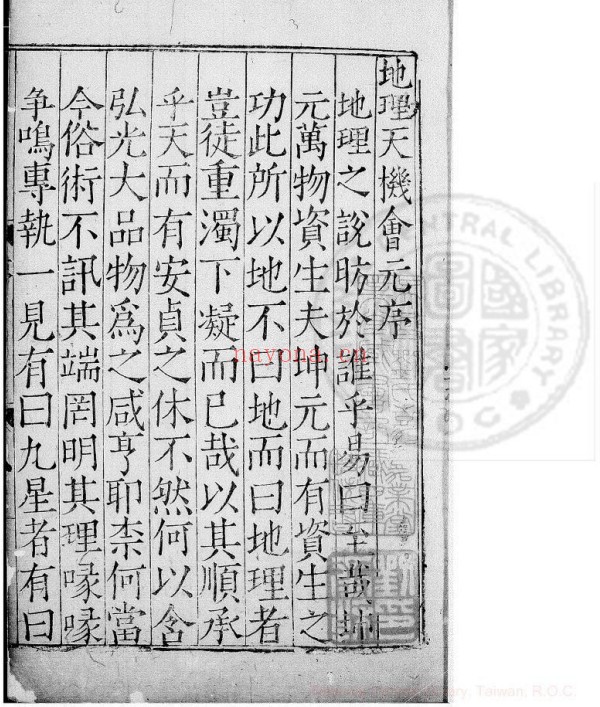 地理天機會元序
地理之說昉於誰乎易曰至哉坤
元萬物資生夫坤元而有資生之
功此所以地不曰地而曰地理者
豈徒重濁下凝而已哉以其順承
乎天而有安貞之休不然何以含
弘光大品物爲之咸亨耶柰何當
今俗術不訊其端罔明其理喙喙
争鳴專執一見有曰九星者有曰
nayona.cn
CENTRAL LIBRARY
國家
R.O.C.
Library, Taiwan, R.O.C.